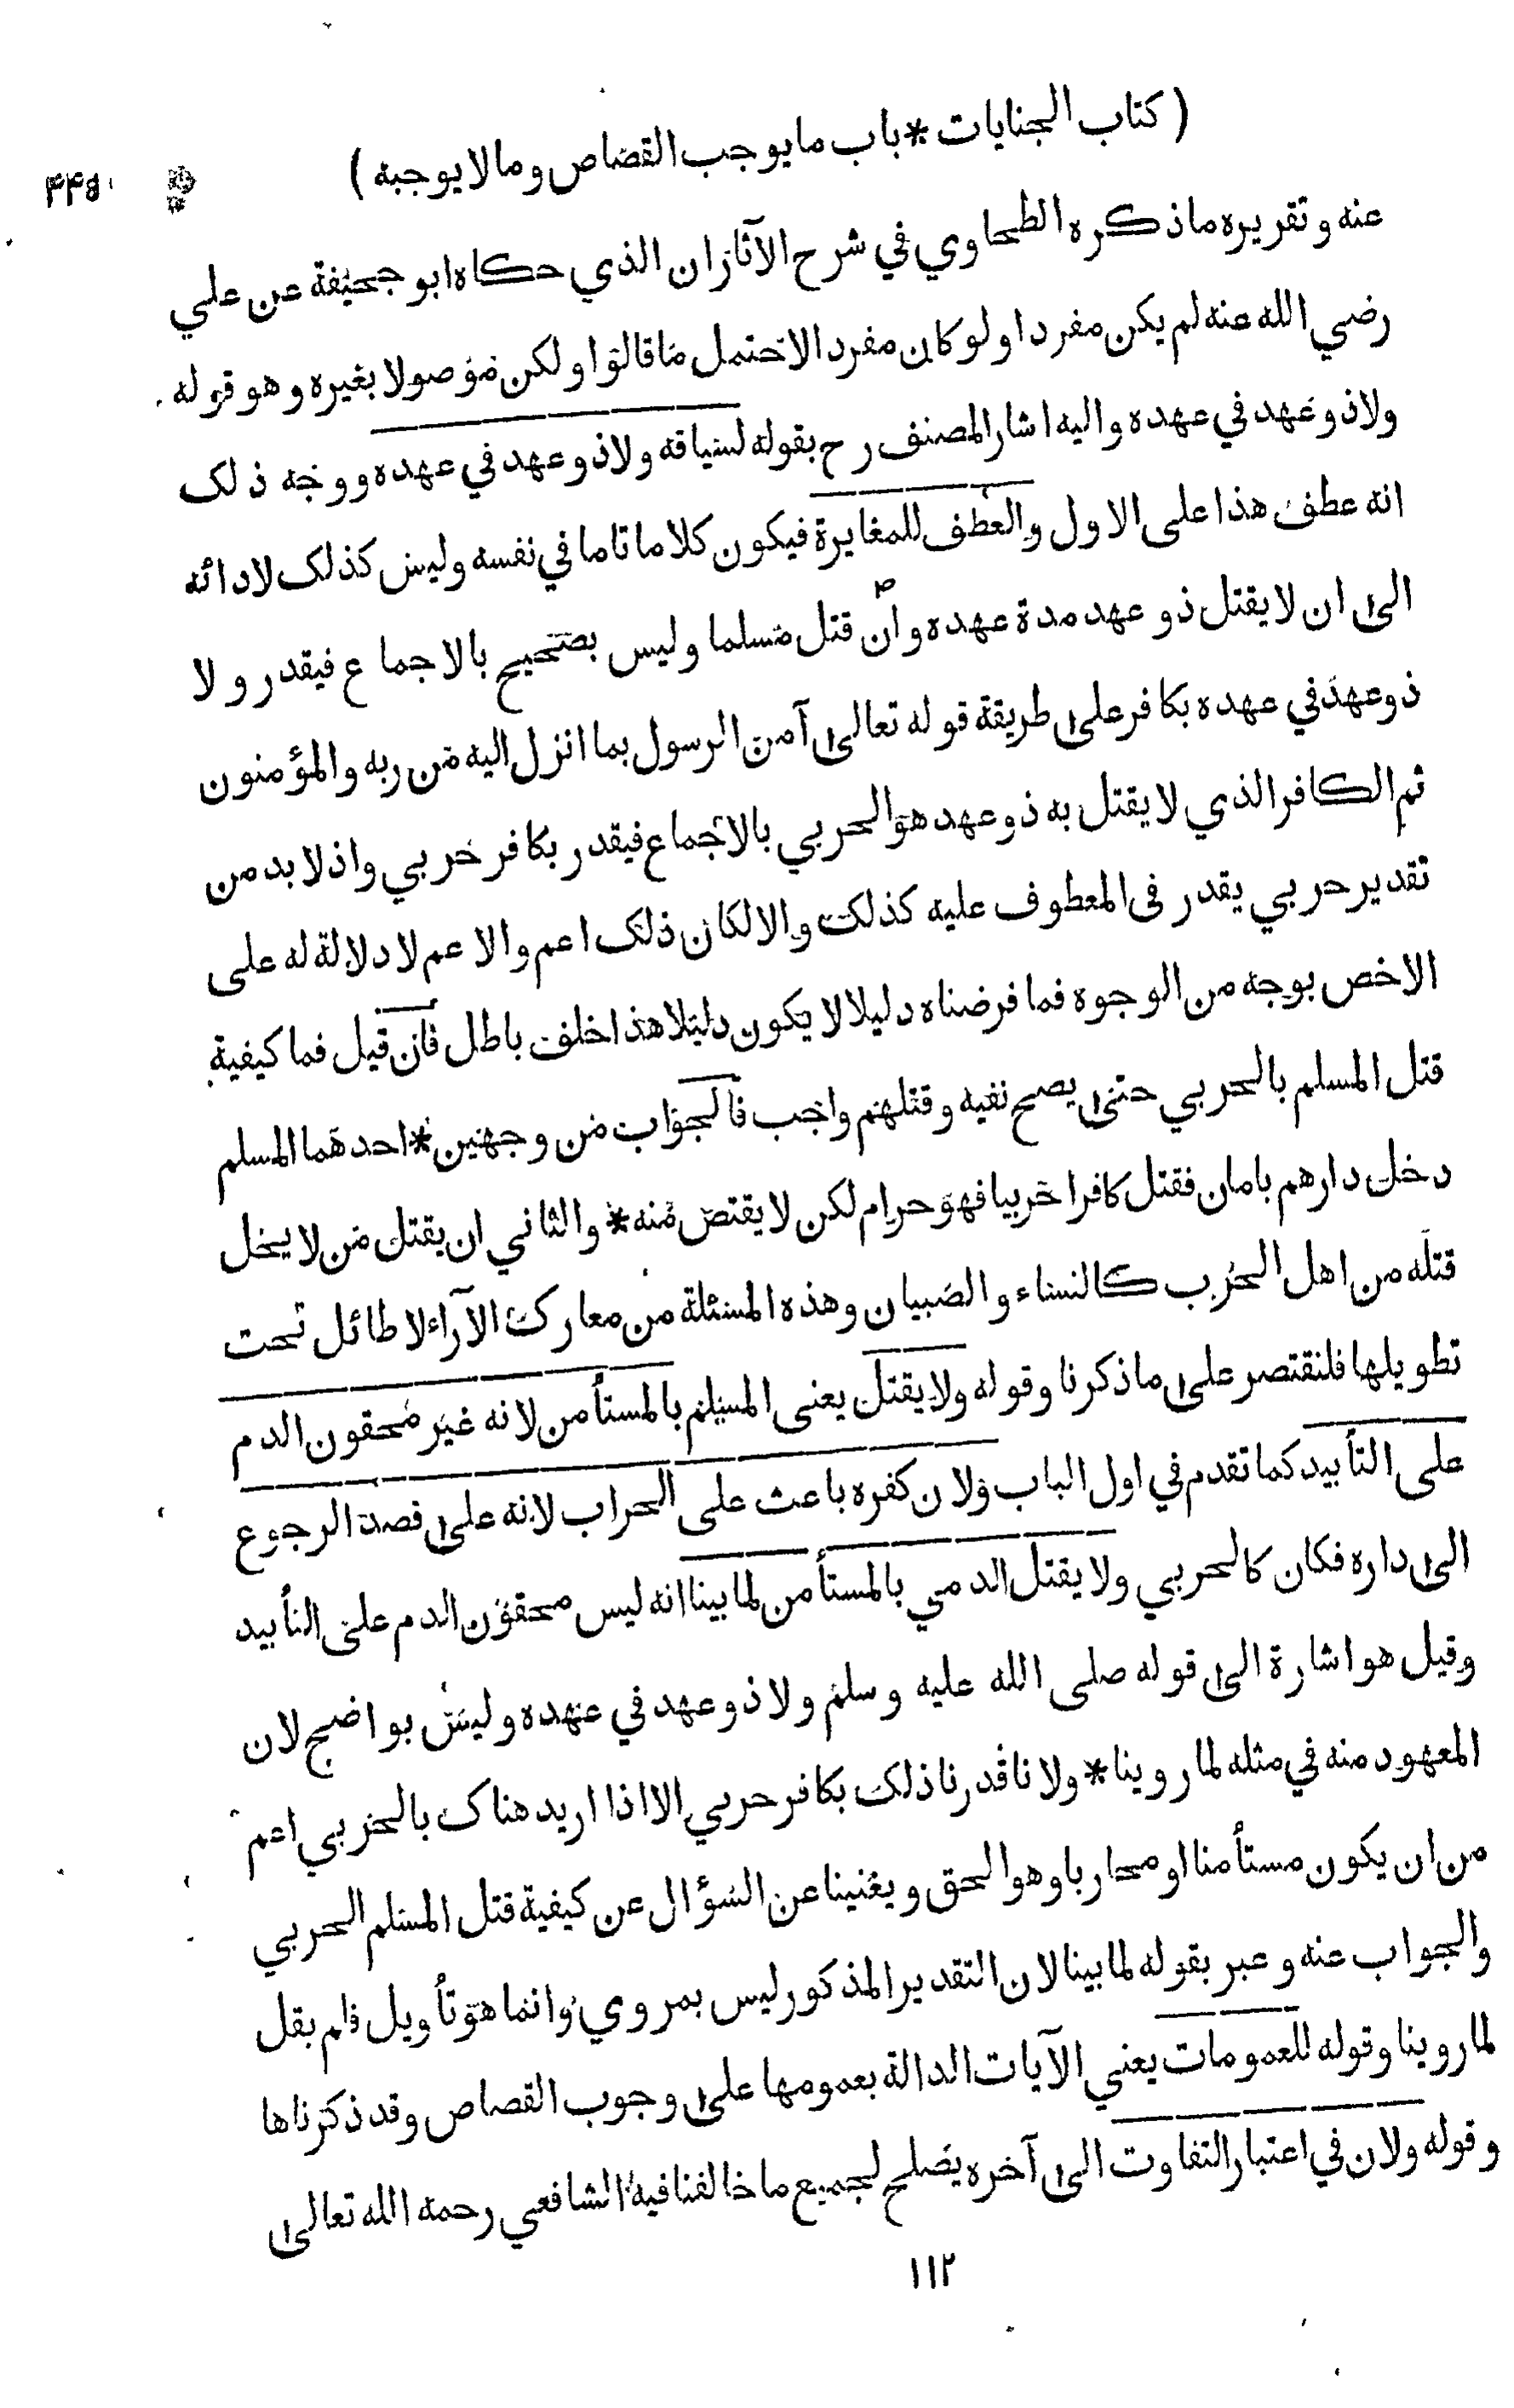 ( كتاب الجنايات * باب ما يوجب القصاص وما لا يوجبه )
۴۴۵
عنه وتقريره ما ذكره الطحاوي في شرح الآثار ان الذي حكاه ابو جحيفة عن علي
رضي الله عنه لم يكن مفردا ولو كان مفردا لاحتمل ما قالوا ولكن موصولا بغيره وهو قوله
ولا ذو عهد في عهده واليه اشار المصنف رح بقوله لسياقه ولا ذو عهد في عهده ووجه ذلك
انه عطف هذا على الاول والعطف للمغايرة فيكون كلاما تاما في نفسه وليس كذلك لادائه
الى ان لا يقتل ذو عهد مدة عهده وان قتل مسلما وليس بصحيح بالاجماع فيقدر ولا
ذو عهد في عهده بكافر على طريقة قوله تعالى آمن الرسول بما انزل اليه من ربه والمؤمنون
ثم الكافر الذي لا يقتل به ذو عهد هو الحربي بالاجماع فيقدر بكافر حربي واذ لا بد من
تقدير حربي يقدر فى المعطوف عليه كذلك والا لكان ذلك اعم والاعم لا دلالة له على
الاخص بوجه من الوجوه فما فرضناه دليلا لا يكون دليلا هذا خلف باطل فان قيل فما كيفية
قتل المسلم بالحربي حتى يصح نفيه وقتلهم واجب فالجواب من وجهين * احدهما المسلم
دخل دارهم بامان فقتل كافرا حربيا فهو حرام لكن لا يقتص منه * والثاني ان يقتل من لا يحل
قتله من اهل الحرب كالنساء والصبيان وهذه المسئلة من معارك الآراء لا طائل تحت
تطويلها فلنقتصر على ما ذكرنا وقوله ولا يقتل يعنى المسلم بالمستأمن لانه غير محقون الدم
على التأبيد كما تقدم في اول الباب ولان كفره باعث على الحراب لانه على قصد الرجوع
الى داره فكان كالحربي ولا يقتل الذمي بالمستأمن لما بينا انه ليس محقون الدم على التأبيد
وقيل هو اشارة الى قوله صلى الله عليه وسلم ولا ذو عهد في عهده وليس بواضح لان
المعهود منه في مثله لما روينا * ولانا قدرنا ذلك بكافر حربي الا اذا اريد هناك بالحربي اعم
من ان يكون مستأمنا او محاربا وهو الحق ويغنينا عن السؤال عن كيفية قتل المسلم الحربي
والجواب عنه وعبر بقوله لما بينا لان التقدير المذكور ليس بمروي وانما هو تأويل فلم يقل
لما روينا وقوله للعمومات يعني الآيات الدالة بعمومها على وجوب القصاص وقد ذكرناها
وقوله ولان في اعتبار التفاوت الى آخره يصلح لجميع ما خالفنا فيه الشافعي رحمه الله تعالى
١١٢